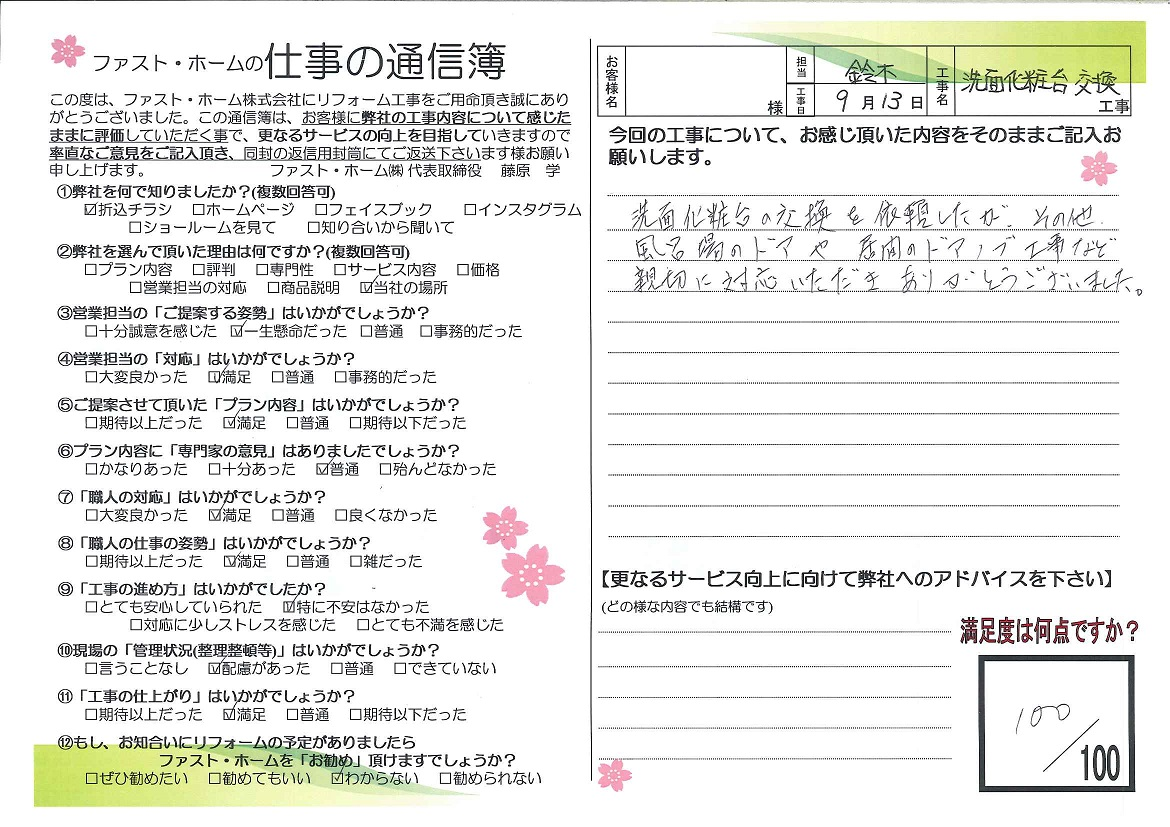 ファスト・ホームの仕事の通信簿
この度は、ファスト・ホーム株式会社にリフォーム工事をご用命頂き誠にあり
がとうございました。この通信簿は、お客様に弊社の工事内容について感じた
ままに評価していただく事で、更なるサービスの向上を目指していきますので
率直なご意見をご記入頂き、同封の返信用封筒にてご返送下さいます様お願い
申し上げます。 ファスト・ホーム㈱ 代表取締役 藤原 学
①弊社を何で知りましたか?(複数回答可)
☑折込チラシ □ホームページ □フェイスブック □インスタグラム
□ショールームを見て □知り合いから聞いて
②弊社を選んで頂いた理由は何ですか?(複数回答可)
□プラン内容 □評判 □専門性 □サービス内容 □価格
□営業担当の対応 □商品説明 ☑当社の場所
③営業担当の「ご提案する姿勢」はいかがでしょうか?
□十分誠意を感じた ☑一生懸命だった □普通 □事務的だった
④営業担当の「対応」はいかがでしょうか?
□大変良かった ☑満足 □普通 □事務的だった
⑤ご提案させて頂いた「プラン内容」はいかがでしょうか?
□期待以上だった ☑満足 □普通 □期待以下だった
⑥プラン内容に「専門家の意見」はありましたでしょうか?
□かなりあった □十分あった ☑普通 □殆んどなかった
⑦「職人の対応」はいかがでしょうか?
□大変良かった ☑満足 □普通 □良くなかった
⑧「職人の仕事の姿勢」はいかがでしょうか?
□期待以上だった ☑満足 □普通 □雑だった
⑨「工事の進め方」はいかがでしたか?
□とても安心していられた ☑特に不安はなかった
□対応に少しストレスを感じた □とても不満を感じた
⑩現場の「管理状況(整理整頓等)」はいかがでしょうか?
□言うことなし ☑配慮があった □普通 □できていない
⑪「工事の仕上がり」はいかがでしょうか?
□期待以上だった ☑満足 □普通 □期待以下だった
⑫もし、お知合いにリフォームの予定がありましたら
ファスト・ホームを「お勧め」頂けますでしょうか?
□ぜひ勧めたい □勧めてもいい ☑わからない □勧められない
お客様名 様 担当 鈴木 工事日 9月13日 工事名 洗面化粧台交換 工事
今回の工事について、お感じ頂いた内容をそのままご記入お
願いします。
洗面化粧台の交換を依頼したが、その他、
風呂場のドアや居間のドアノブ工事など
親切に対応いただきありがとうございました。
【更なるサービス向上に向けて弊社へのアドバイスを下さい】
(どの様な内容でも結構です)
満足度は何点ですか?
100/100